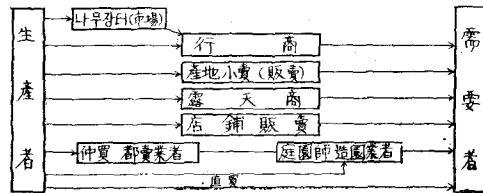 生産者
나무장터(市場)
行商
産地小賣(販賣)
露天商
店鋪販賣
仲買 都賣業者
庭園師 造園業者
直買
需要者